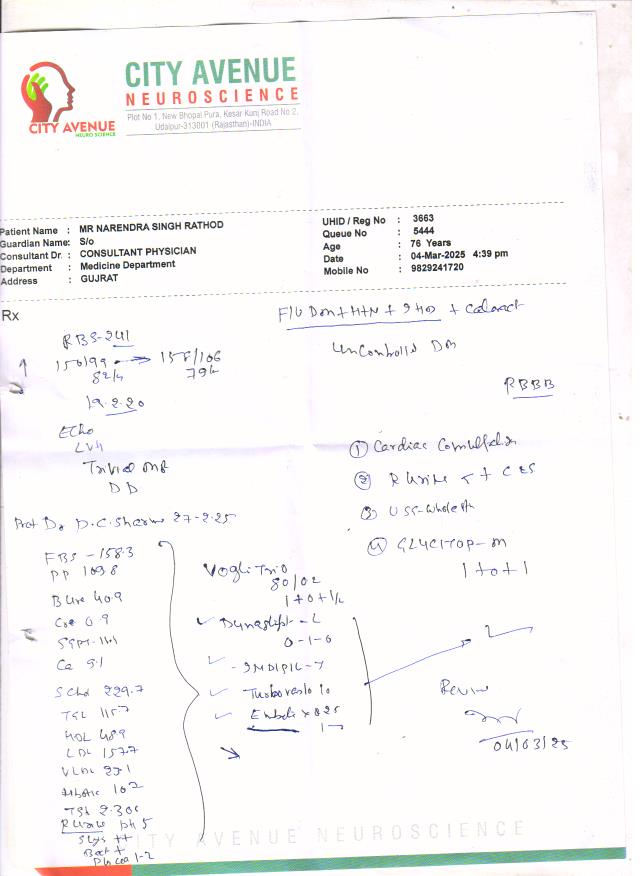 CITY AVENUE
NEUROSCIENCE
Plot No 1, New Bhopal Pura, Kesar Kunj Road No 2,
Udaipur-313001 (Rajasthan)-INDIA
CITY AVENUE
NEURO SCIENCE
Patient Name : MR NARENDRA SINGH RATHOD
Guardian Name: S/o
Consultant Dr. : CONSULTANT PHYSICIAN
Department : Medicine Department
Address : GUJRAT
UHID / Reg No : 3663
Queue No : 5444
Age : 76 Years
Date : 04-Mar-2025 4:39 pm
Mobile No : 9829241720
Rx
F/U DM + HTN + IHD + Cataract
Uncontrolled DM
RBBB
RBS-241
150/99 → 158/106
19.2.20
Echo
LVH
Trivial MR
DD
① Cardiac Consultation
② R Urine + C&S
③ USG-Whole
④ GLYCITOP-M
1+0+1
D.C. Sharma 27-2-25
FBS - 158.3
PP
B Urea 40.9
Cre 0.9
SGPT
Ca 9.1
S Chol 229.7
TGL 115.7
HDL 48.9
LDL 157.7
VLDL 23.1
HbA1c 10.2
TSH
R Urine Ph 5
++
Bact +
Pus Cell 1-2
Vogli Trio
80/02
1+0+1/2
0-1-0
Review
04/03/25
CITY AVENUE NEUROSCIENCE